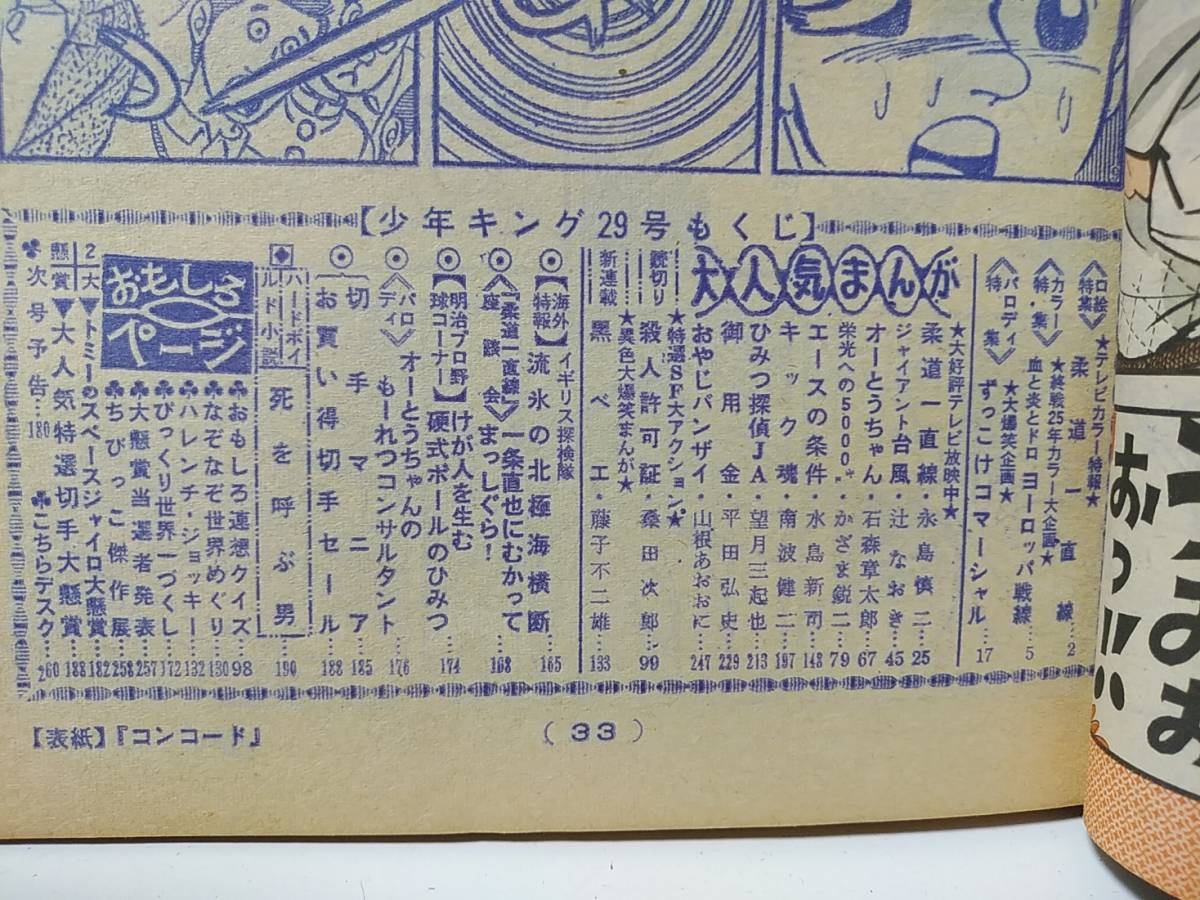 【少年キング29号もくじ】
《口絵特集》★テレビカラー特報★
柔道一直線…2
《カラー特集》★終戦25年カラー大企画★
血と炎とドロ ヨーロッパ戦線…5
《パロディ特集》★大爆笑企画★
ずっこけコマーシャル…17
大人気まんが
★大好評テレビ放映中★
柔道一直線・永島慎二…25
ジャイアント台風・辻なおき…45
オーとうちゃん・石森章太郎…67
栄光への5000キロ・かざま鋭二…79
エースの条件・水島新司…148
キック魂・南波健二…197
ひみつ探偵JA・望月三起也…213
御用金・平田弘史…229
おやじバンザイ・山根あおおに…247
読切り
★特選SF大アクション★
殺人許可証・桑田次郎…99
新連載
★異色大爆笑まんが★
黒ベエ・藤子不二雄…133
◉【海外特報】イギリス探検隊
流氷の北極海横断…165
◉《「柔道一直線」座談会》一条直也にむかって
まっしぐら！…168
◉【明治プロ野球コーナー】けが人を生む
硬式ボールのひみつ…174
◉《パロディ》オーとうちゃんの
もーれつコンサルタント…176
◉切手マニア…185
お買い得切手セール…188
◆ハードボイルド小説
死を呼ぶ男…190
おもしろページ
♣おもしろ連想クイズ…98
♣なぞなぞ世界めぐり…130
♣ハレンチ・ジョッキー…132
♣びっくり世界一づくし…172
♣大懸賞当選者発表…257
♣ちびっこ傑作展…258
2大懸賞
▼トミーのスペースジャイロ大懸賞…182
▼大人気特選切手大懸賞…188
♣次号予告…180
♣こちらデスク…260
【表紙】『コンコード』
(33)